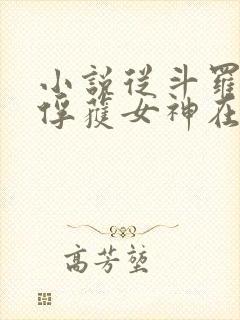 小說從斗羅
俘獲女神在
高芳堃